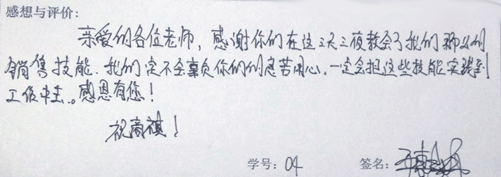 感想与评价:
亲爱的各位老师，感谢你们在这三天三夜教会了我们那么的
销售技能.我们定不会辜负你们的良苦用心，一定会把这些技能实践到
工作中去。感恩有您！
祝商祺！
学号: 04
签名: